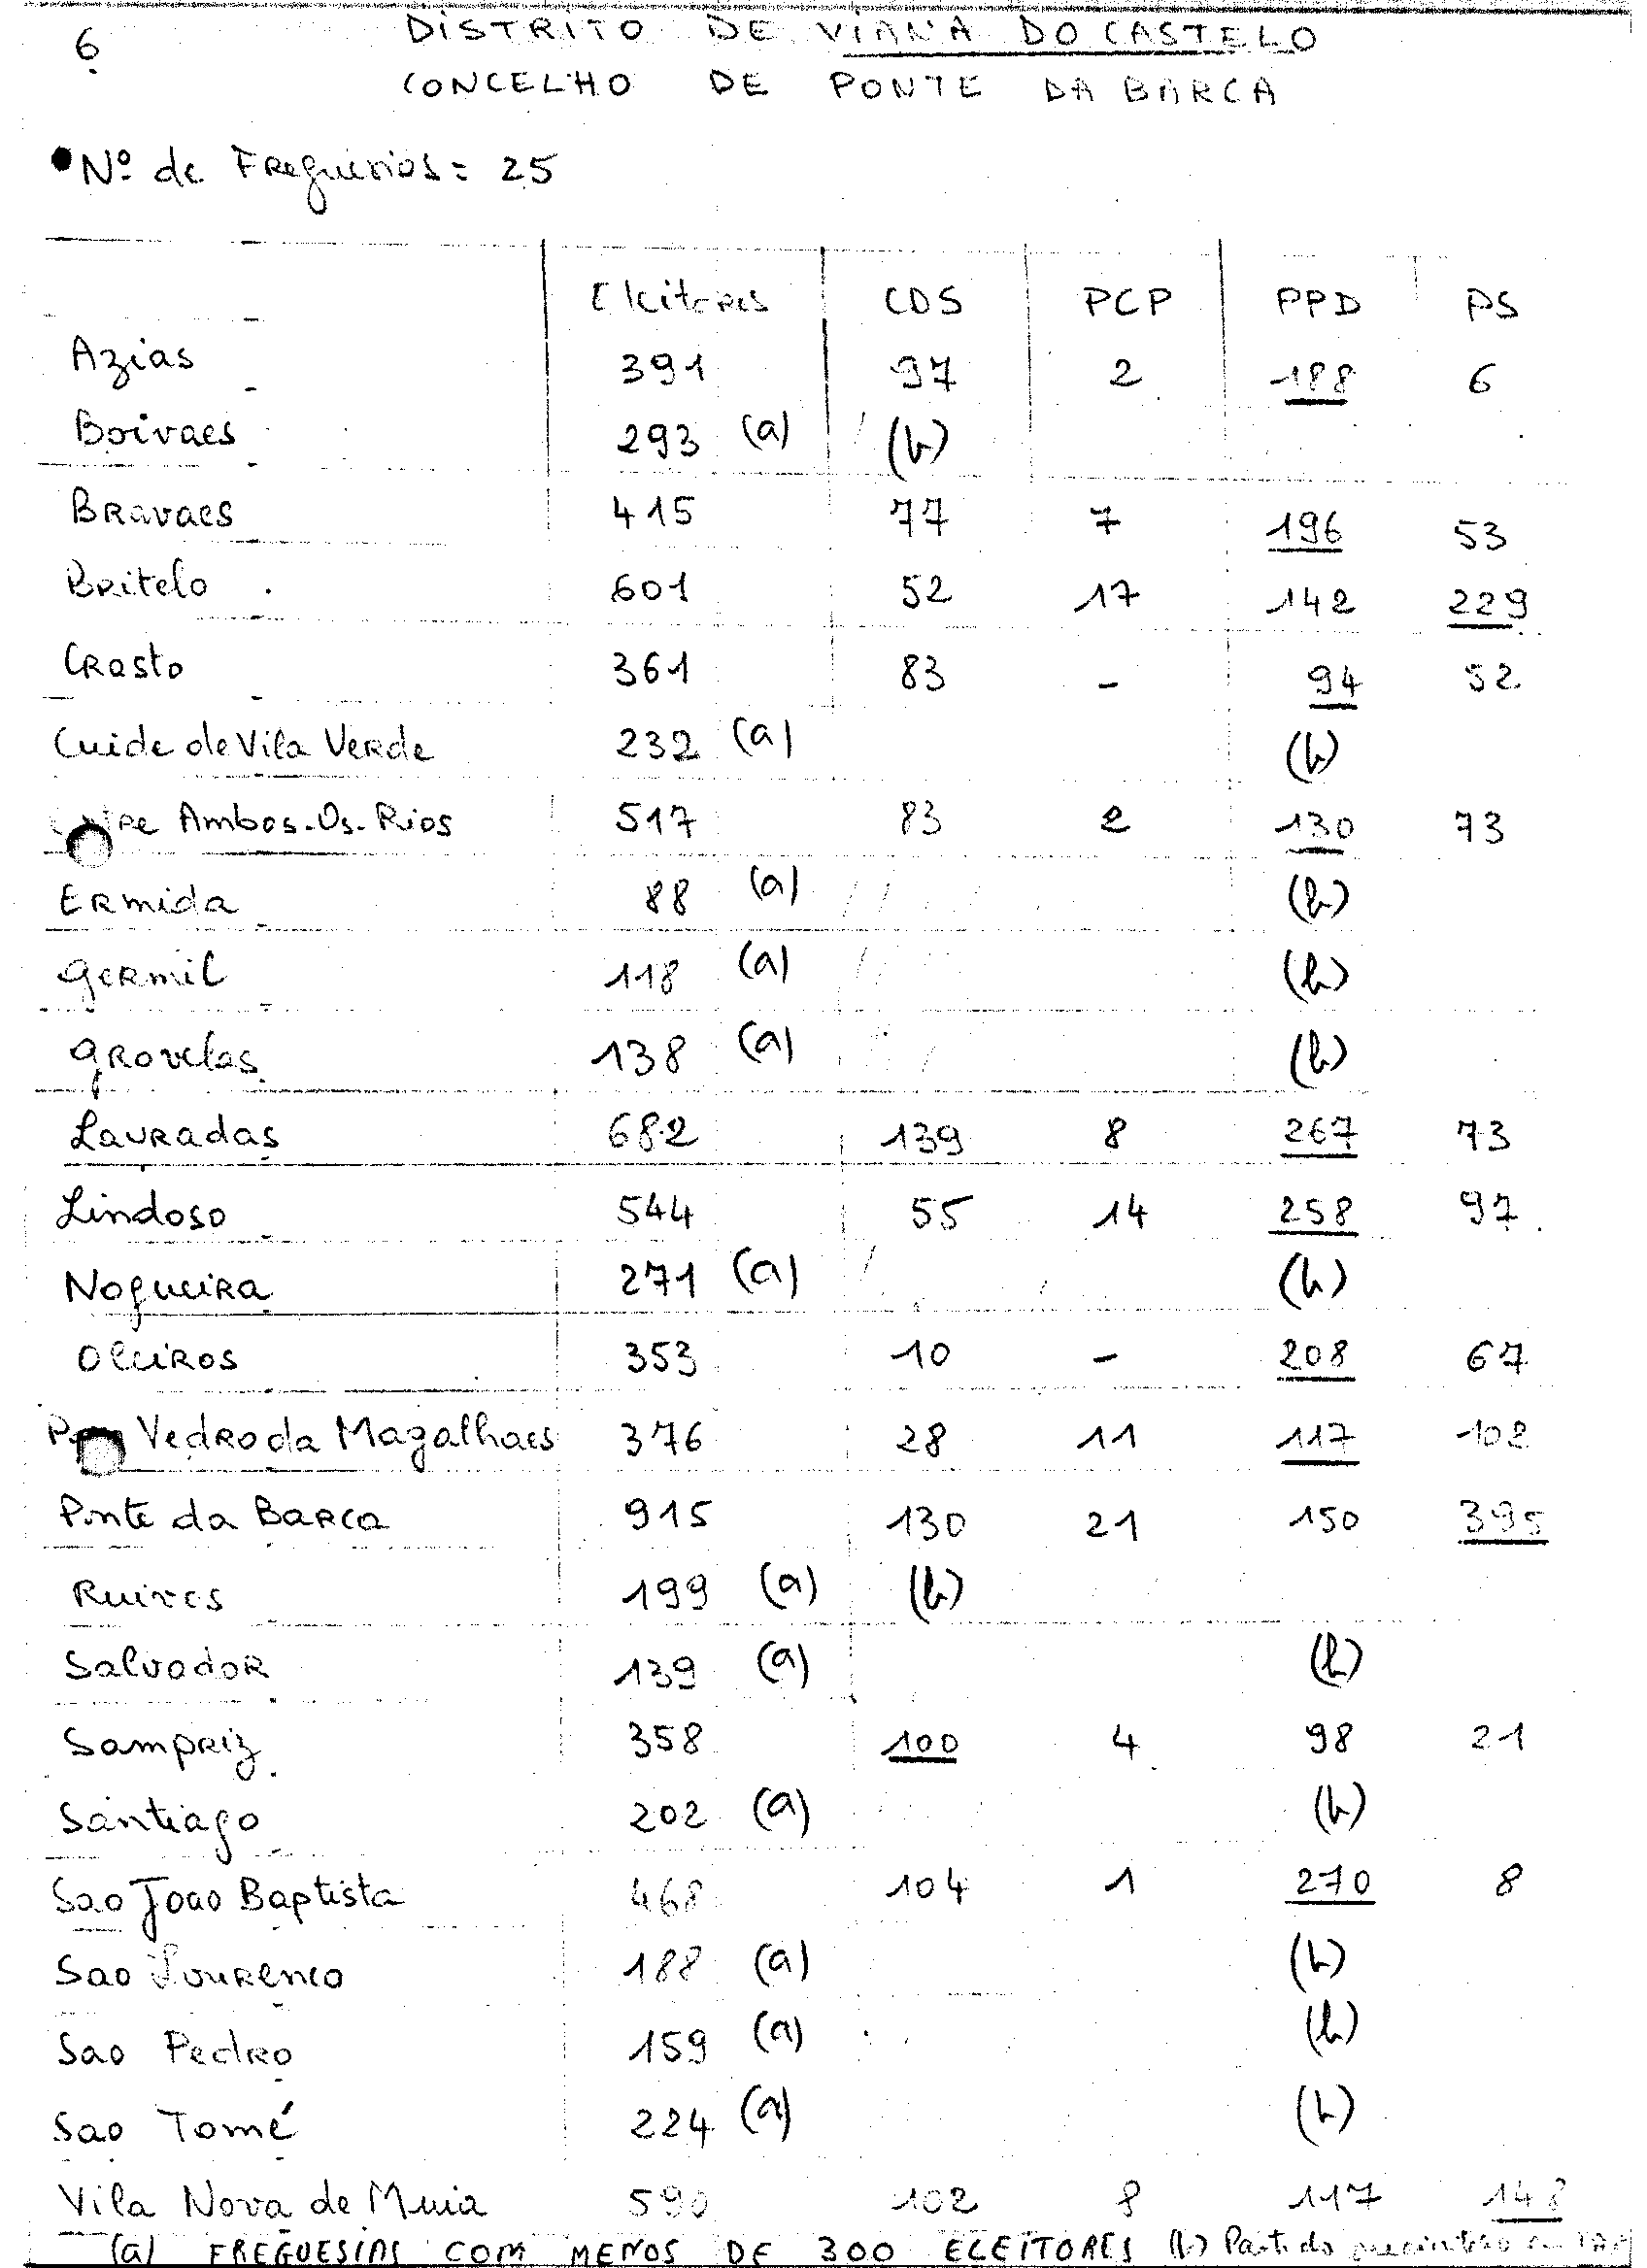 6
DISTRITO DE VIANA DO CASTELO
CONCELHO DE PONTE DA BARCA
Nº de Freguesias = 25
Eleitores CDS PCP PPD PS
Azias 391 97 2 188 6
Boivaes 293 (a) (b)
Bravaes 415 77 7 196 53
Britelo 601 52 17 142 229
Crasto 361 83 - 94 52
Cuide de Vila Verde 232 (a) (b)
Ambos-Os-Rios 517 83 2 130 73
Ermida 88 (a) (b)
Germil 118 (a) (b)
Grovelas 138 (a) (b)
Lavradas 682 139 8 267 73
Lindoso 544 55 14 258 97
Nogueira 271 (a) (b)
Oleiros 353 10 - 208 67
Vedro da Magalhaes 376 28 11 117 102
Ponte da Barca 915 130 21 150 395
Ruivos 199 (a) (b)
Salvador 139 (a) (b)
Sampriz 358 100 4 98 21
Santiago 202 (a) (b)
Sao Joao Baptista 468 104 1 270 8
Sao Lourenco 188 (a) (b)
Sao Pedro 159 (a) (b)
Sao Tomé 224 (a) (b)
Vila Nova de Muia 590 102 8 117 148
(a) FREGUESIAS COM MENOS DE 300 ELEITORES (b) Partido